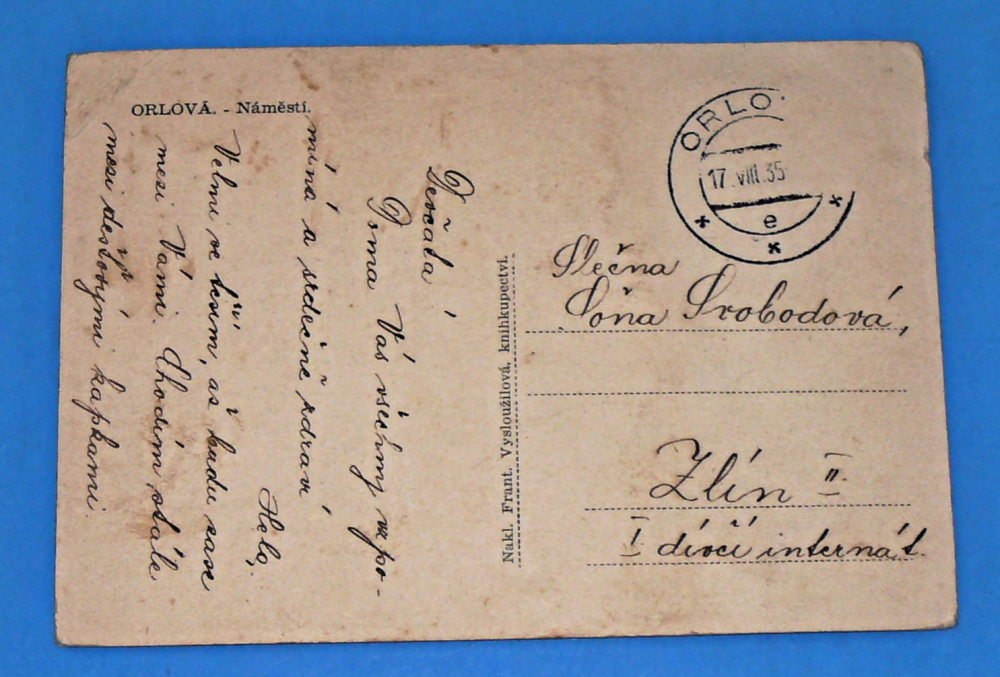 ORLOVÁ. - Náměstí.
Děvčata!
Doma Vás všechny vzpo-
míná a srdečně zdraví
Helo,
Velmi se těším, až budu zase
mezi Vámi. Chodím stále
mezi dešťovými kapkami.
Nakl. Frant. Vysloužilová, knihkupectví.
ORLO
17.VIII.35
e
Slečna
Soňa Svobodová,
Zlín II
I dívčí internát.